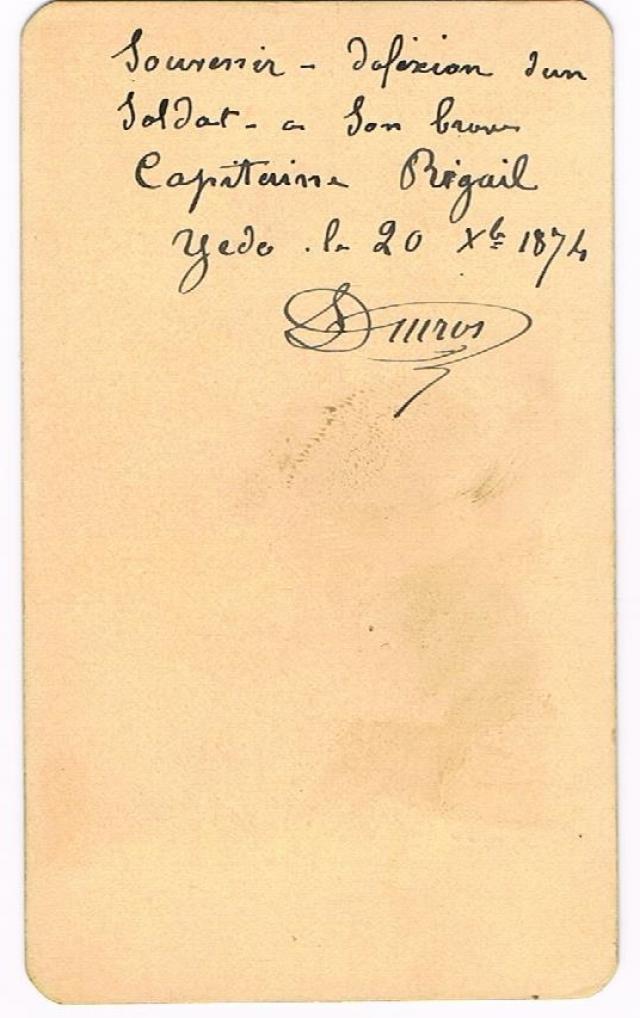 Souvenir - dafèxion d'un
Soldat - a Son brave
Capitaine Rigail
Yedo . le 20 Xbre 1874